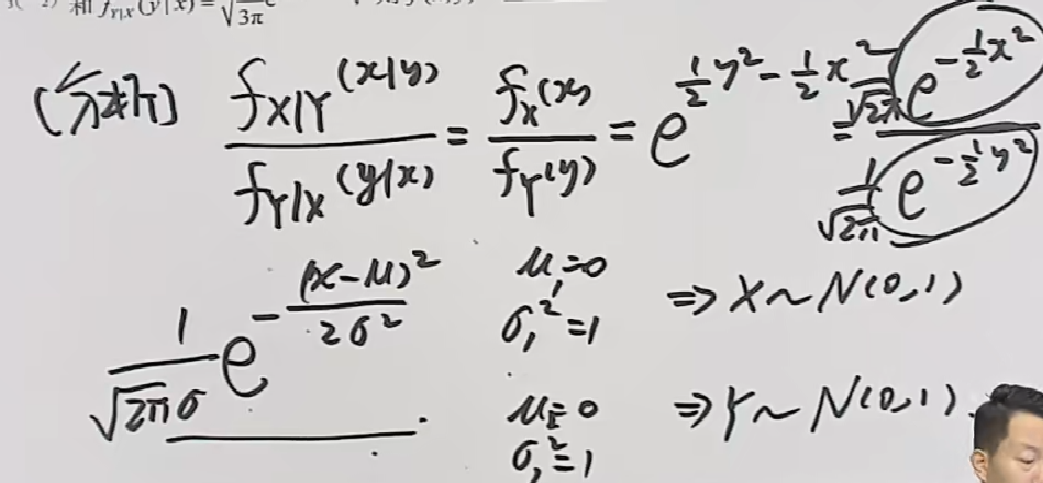 和 f_{Y|X}(y|x) = \sqrt{3π} e
(分析) \frac{f_{X|Y}(x|y)}{f_{Y|X}(y|x)} = \frac{f_X(x)}{f_Y(y)} = e^{\frac{1}{2}y^2 - \frac{1}{2}x^2} = \frac{\frac{1}{\sqrt{2π}} e^{-\frac{1}{2}x^2}}{\frac{1}{\sqrt{2π}} e^{-\frac{1}{2}y^2}}
\frac{1}{\sqrt{2π}σ} e^{-\frac{(x-μ)^2}{2σ^2}}
μ_1=0
σ_1^2=1
⇒ X ~ N(0,1)
μ_2=0
σ_2^2=1
⇒ Y ~ N(0,1).